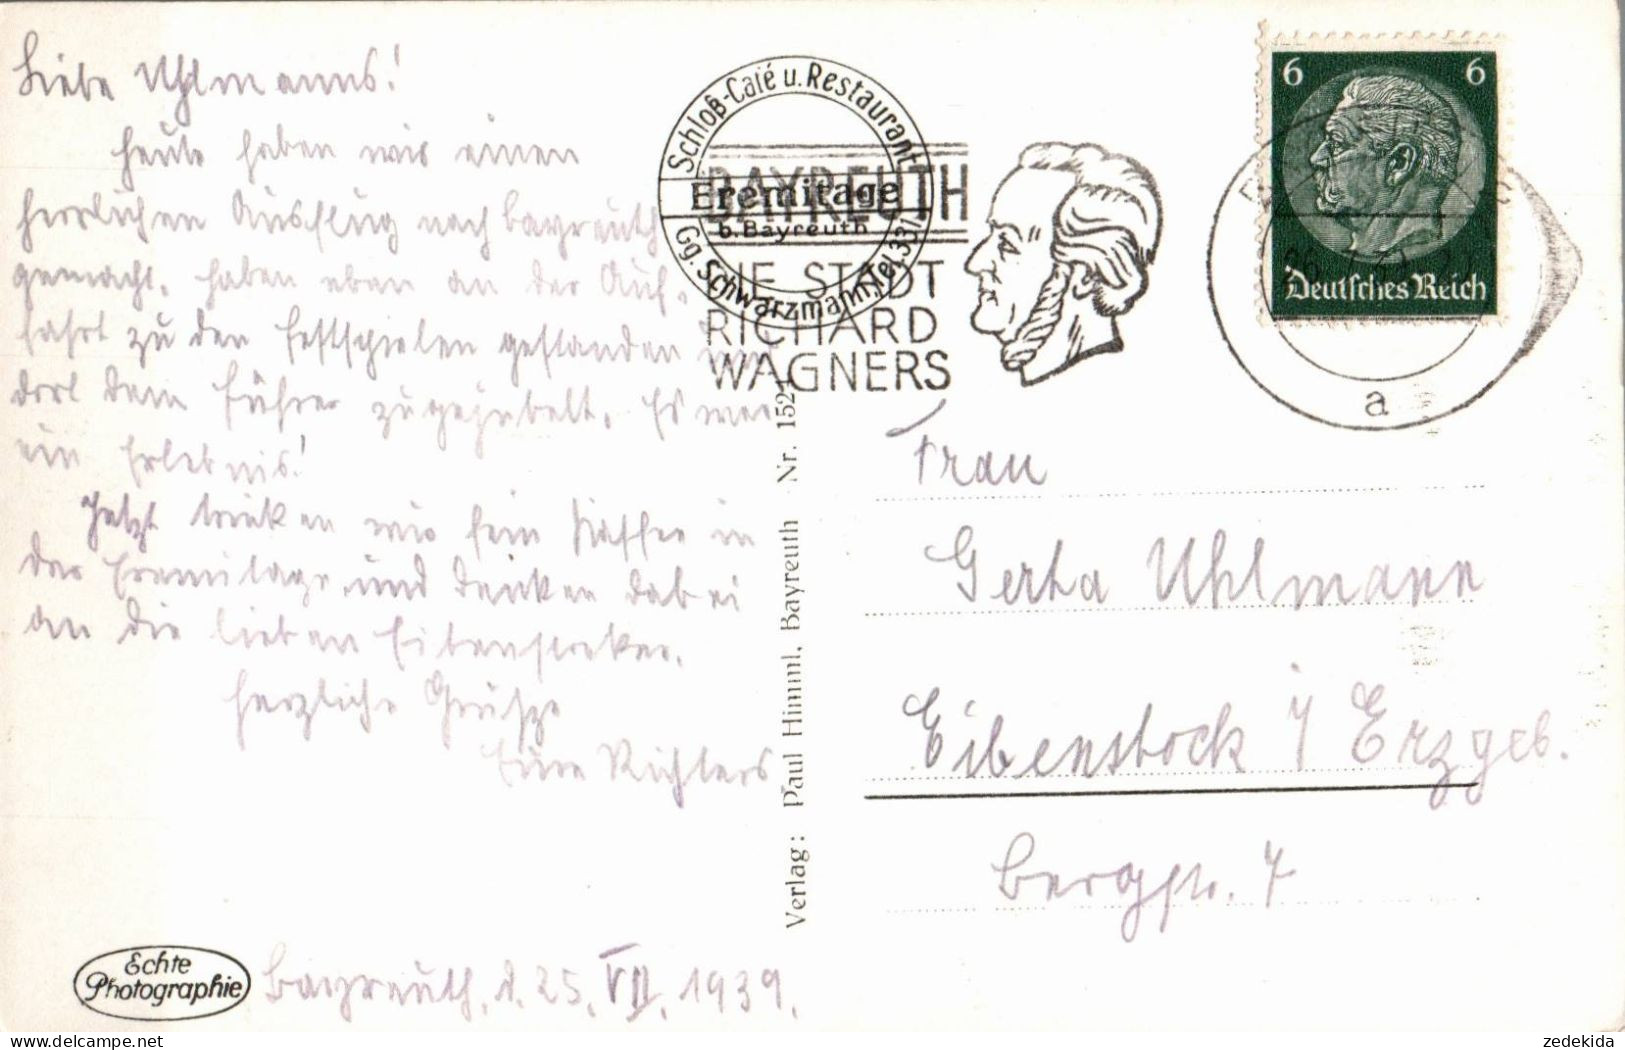 Liebe Uhlmanns!
Heute haben wir einen
herrlichen Ausflug nach Bayreuth
gemacht. Haben eben an der Auf-
fahrt zu den Festspielen gestanden und
dort dem Führer zugejubelt. Es war
ein Erlebnis!
Jetzt trinken wir fein Kaffee in
der Eremitage und denken dabei
an die lieben Eibenstocker.
Herzliche Grüße
Eure Richters
Bayreuth, d. 25. VII. 1939.
Echte
Photographie
Schloß-Café u. Restaurant
Eremitage
b. Bayreuth
Gg. Schwarzmann, Tel. 331
BAYREUTH
DIE STADT
RICHARD
WAGNERS
6 6
Deutsches Reich
a
Verlag: Paul Himml, Bayreuth Nr. 152
Frau
Gerta Uhlmann
Eibenstock i/ Erzgeb.
Bergstr. 7
zedekida